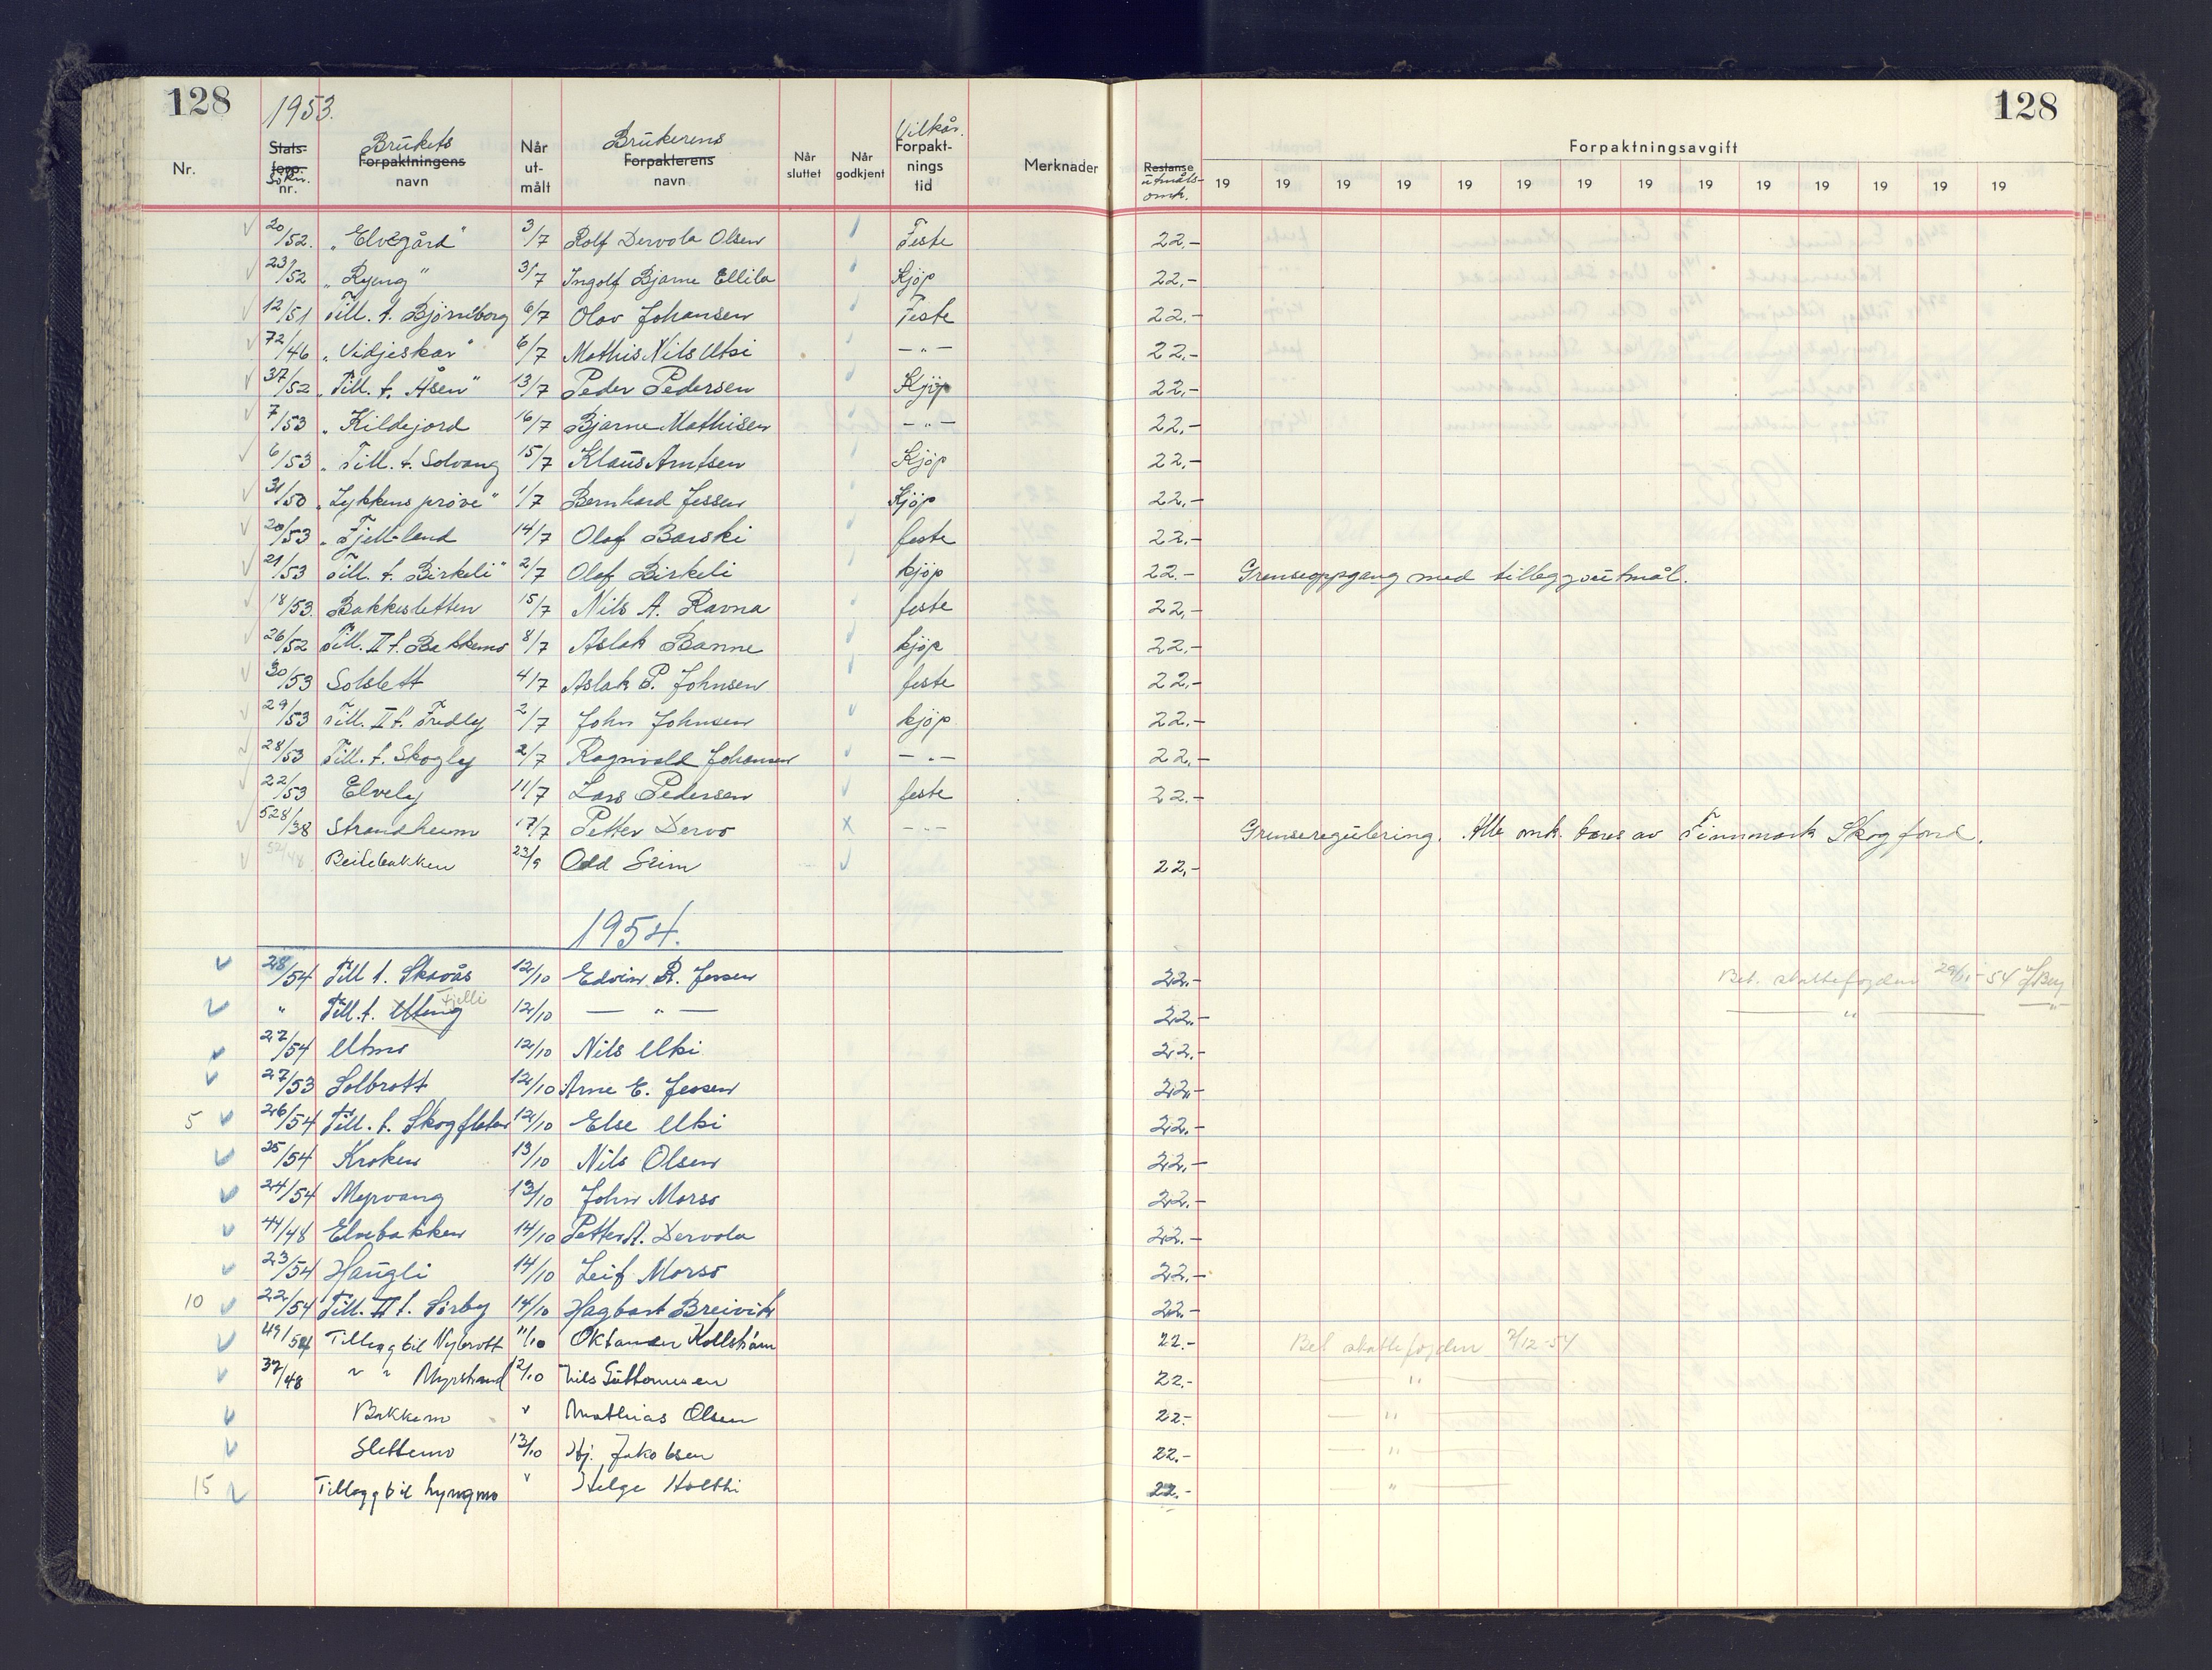 128 1953. 128
Nr. Stats-forp. Søkn. nr. Brukets Forpaktningens navn Når ut-målt Brukerens Forpakterens navn Når sluttet Når godkjent Vilkår. Forpakt-nings tid Merknader Restanse utmåls-omk. Forpaktningsavgift
19 19 19 19 19 19 19 19 19 19 19 19 19 19
20/52. "Elvegård" 3/7 Rolf Dervola Olsen Feste 22.-
23/52 "Ryeng" 3/7 Ingolf Bjarne Ellila Kjöp 22.-
12/51 Till. t. Björneborg 6/7 Olav Johansen Feste 22.-
72/46 "Vidjeskar" 6/7 Mathis Nils Utsi - " - 22.-
37/52 "Till. t. Åsen" 13/7 Peder Pedersen Kjöp 22.-
7/53 " Kildejord 16/7 Bjarne Mathisen - " - 22.-
6/53 " Till. t. Solvang 15/7 Klaus Arntsen Kjöp 22.-
31/50 "Lykkens pröve" 1/7 Bernhard Jessen Kjöp 22.-
20/53 " Fjell-lend 14/7 Olaf Barski feste 22.-
21/53 Till. t. Birkeli" 2/7 Olaf Birkeli kjöp 22.- Grenseoppgang med tilleggsutmål.
18/53. Bakkesletten 15/7 Nils A. Ravna feste 22.-
26/52 Till. II t. Bakkemo 8/7 Aslak Banne kjöp 22.-
30/53 Solslett 4/7 Aslak P. Johnsen feste 22.-
29/53 Till. II t. Fredly 2/7 John Johnsen kjöp 22.-
28/53 Till. t. Skogly 2/7 Ragnvald Johansen - " - 22.-
22/53 Elvely 11/7 Lars Pedersen feste 22.-
528/38 Strandheim 17/7 Petter Dervo x - " - Grenseregulering. Alle omk. bæres av Finnmark Skogfond.
52/48 Beitebakken 23/9 Odd Seim 22.-
1954.
28/54 Till t. Skavås 12/10 Edvin R. Jessen 22.- Bet. skattefogden 29/11-54
" Till. t. Fjelli 12/10 - " - 22.- - " -
27/54 Utmo 12/10 Nils Utsi 22.-
27/53 Solbrott 12/10 Arne E. Jessen 22.-
5 26/54 Till. t. Skogfleten 12/10 Else Utsi 22.-
25/54 Kroken 13/10 Nils Olsen 22.-
24/54 Myrvang 13/10 John Morsö 22.-
44/48 Elvebakken 14/10 Petter A. Dervola 22.-
23/54 Haugli 14/10 Leif Morsö 22.-
10 22/54 Till. II t. Sörby 14/10 Hagbart Breivik 22.-
49/54 Tillegg til Nybrott 11/10 Oktander Kollström 22.- Bet skattefogden 7/12-54
37/48 " " Myrstrand 12/10 Nils Guttormsen 22.- - " -
Bakkemo " Mathias Olsen 22.- - " -
Slettemo 13/10 Hj. Jakobsen 22.- - " -
15 Tillegg til Lyngmo " Helge Holthi 22.- - " -